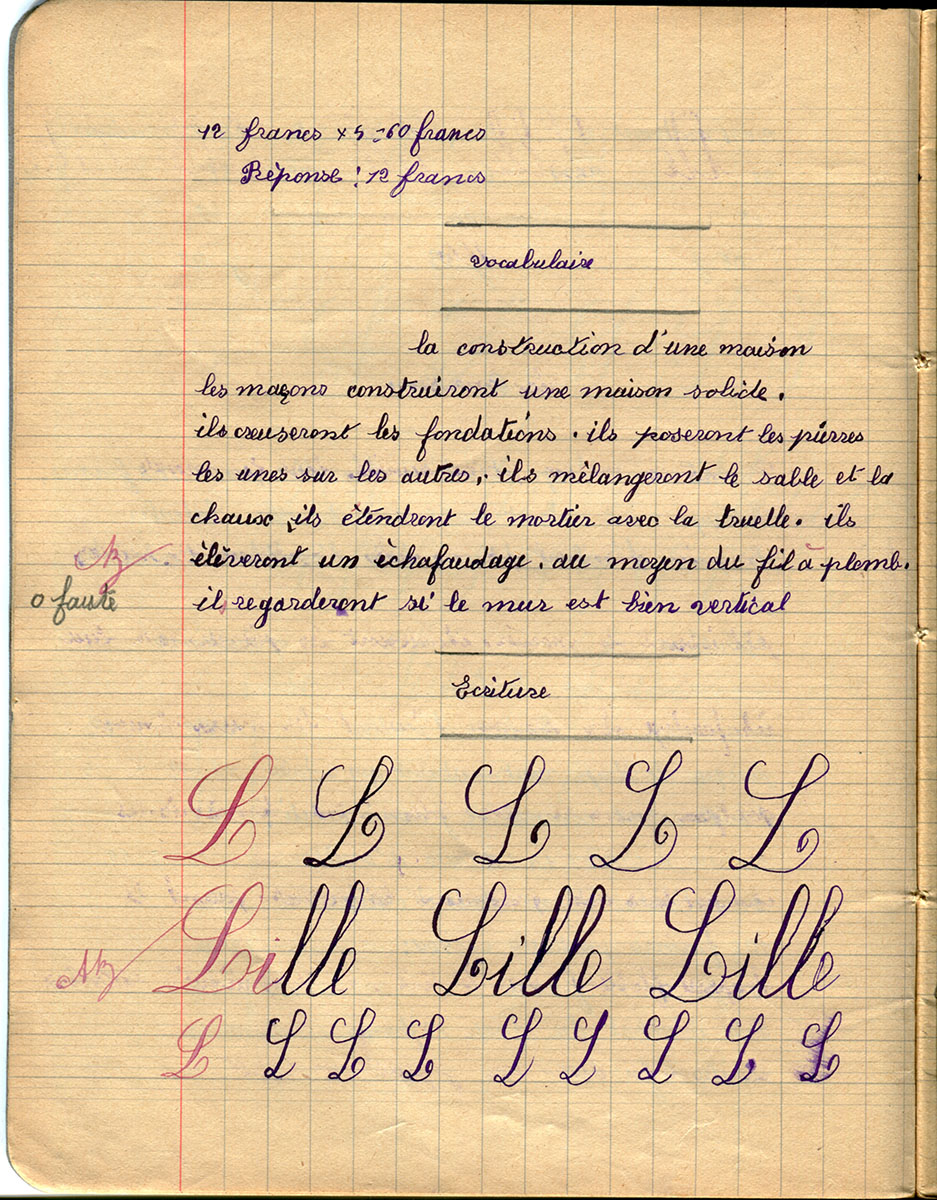 12 francs × 5 = 60 francs
Réponse : 12 francs
vocabulaire
la construction d'une maison
les maçons construiront une maison solide.
ils creuseront les fondations. ils poseront les pierres
les unes sur les autres. ils mélangeront le sable et la
chaux, ils étendront le mortier avec la truelle. ils
élèveront un échafaudage. au moyen du fil à plomb.
il regarderont si le mur est bien vertical
0 faute
Ecriture
L L L L L
Lille Lille Lille
L L L L L L L L L